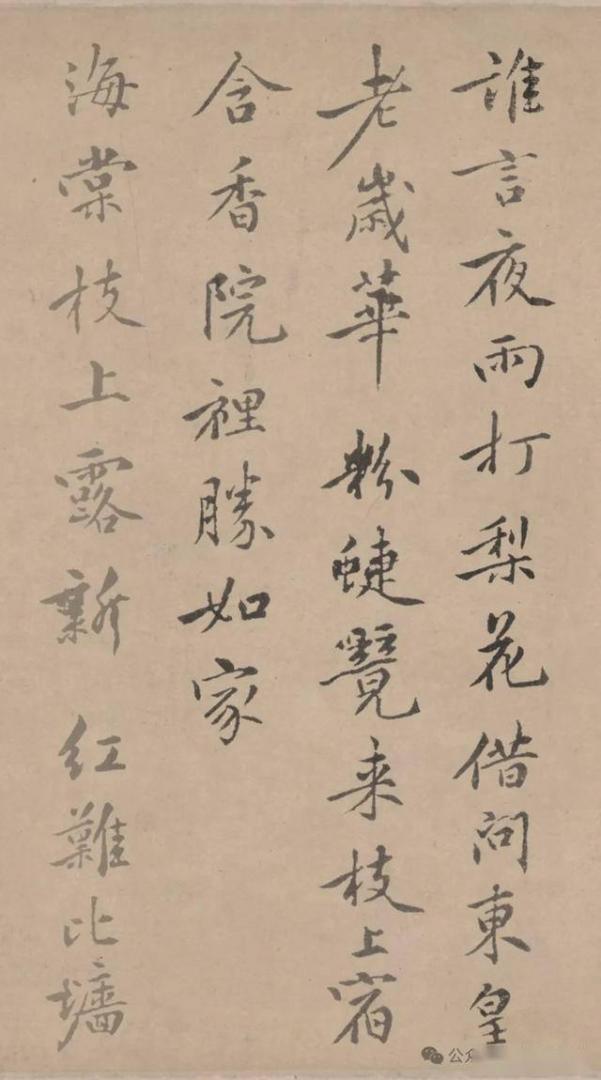 誰言夜雨打梨花借問東皇
老歲華 粉蜨覺来枝上宿
含香院裡勝如家
海棠枝上露新 紅難比墻
公众